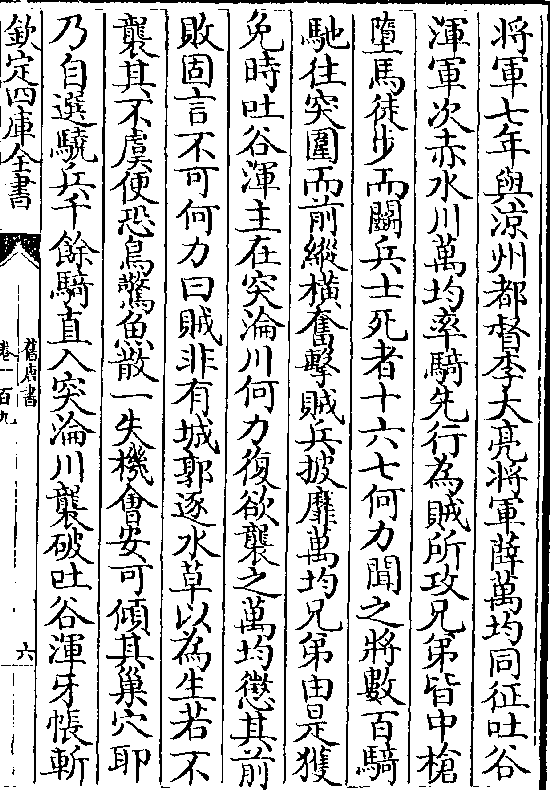 将軍七年與涼州都督李大亮将軍薛萬均同征吐谷
渾軍次赤水川萬均率騎先行為賊所攻兄弟皆中槍
墮馬徒步而鬬兵士死者十六七何力聞之將數百騎
馳往突圍而前縱橫奮擊賊兵披靡萬均兄弟由是獲
免時吐谷渾主在突淪川何力復欲襲之萬均懲其前
敗固言不可何力曰賊非有城郭逐水草以為生若不
襲其不虞便恐鳥驚魚散一失機會安可傾其巢穴耶
乃自選驍兵千餘騎直入突淪川襲破吐谷渾牙帳斬
欽定四庫全書
舊唐書
卷一百九
六